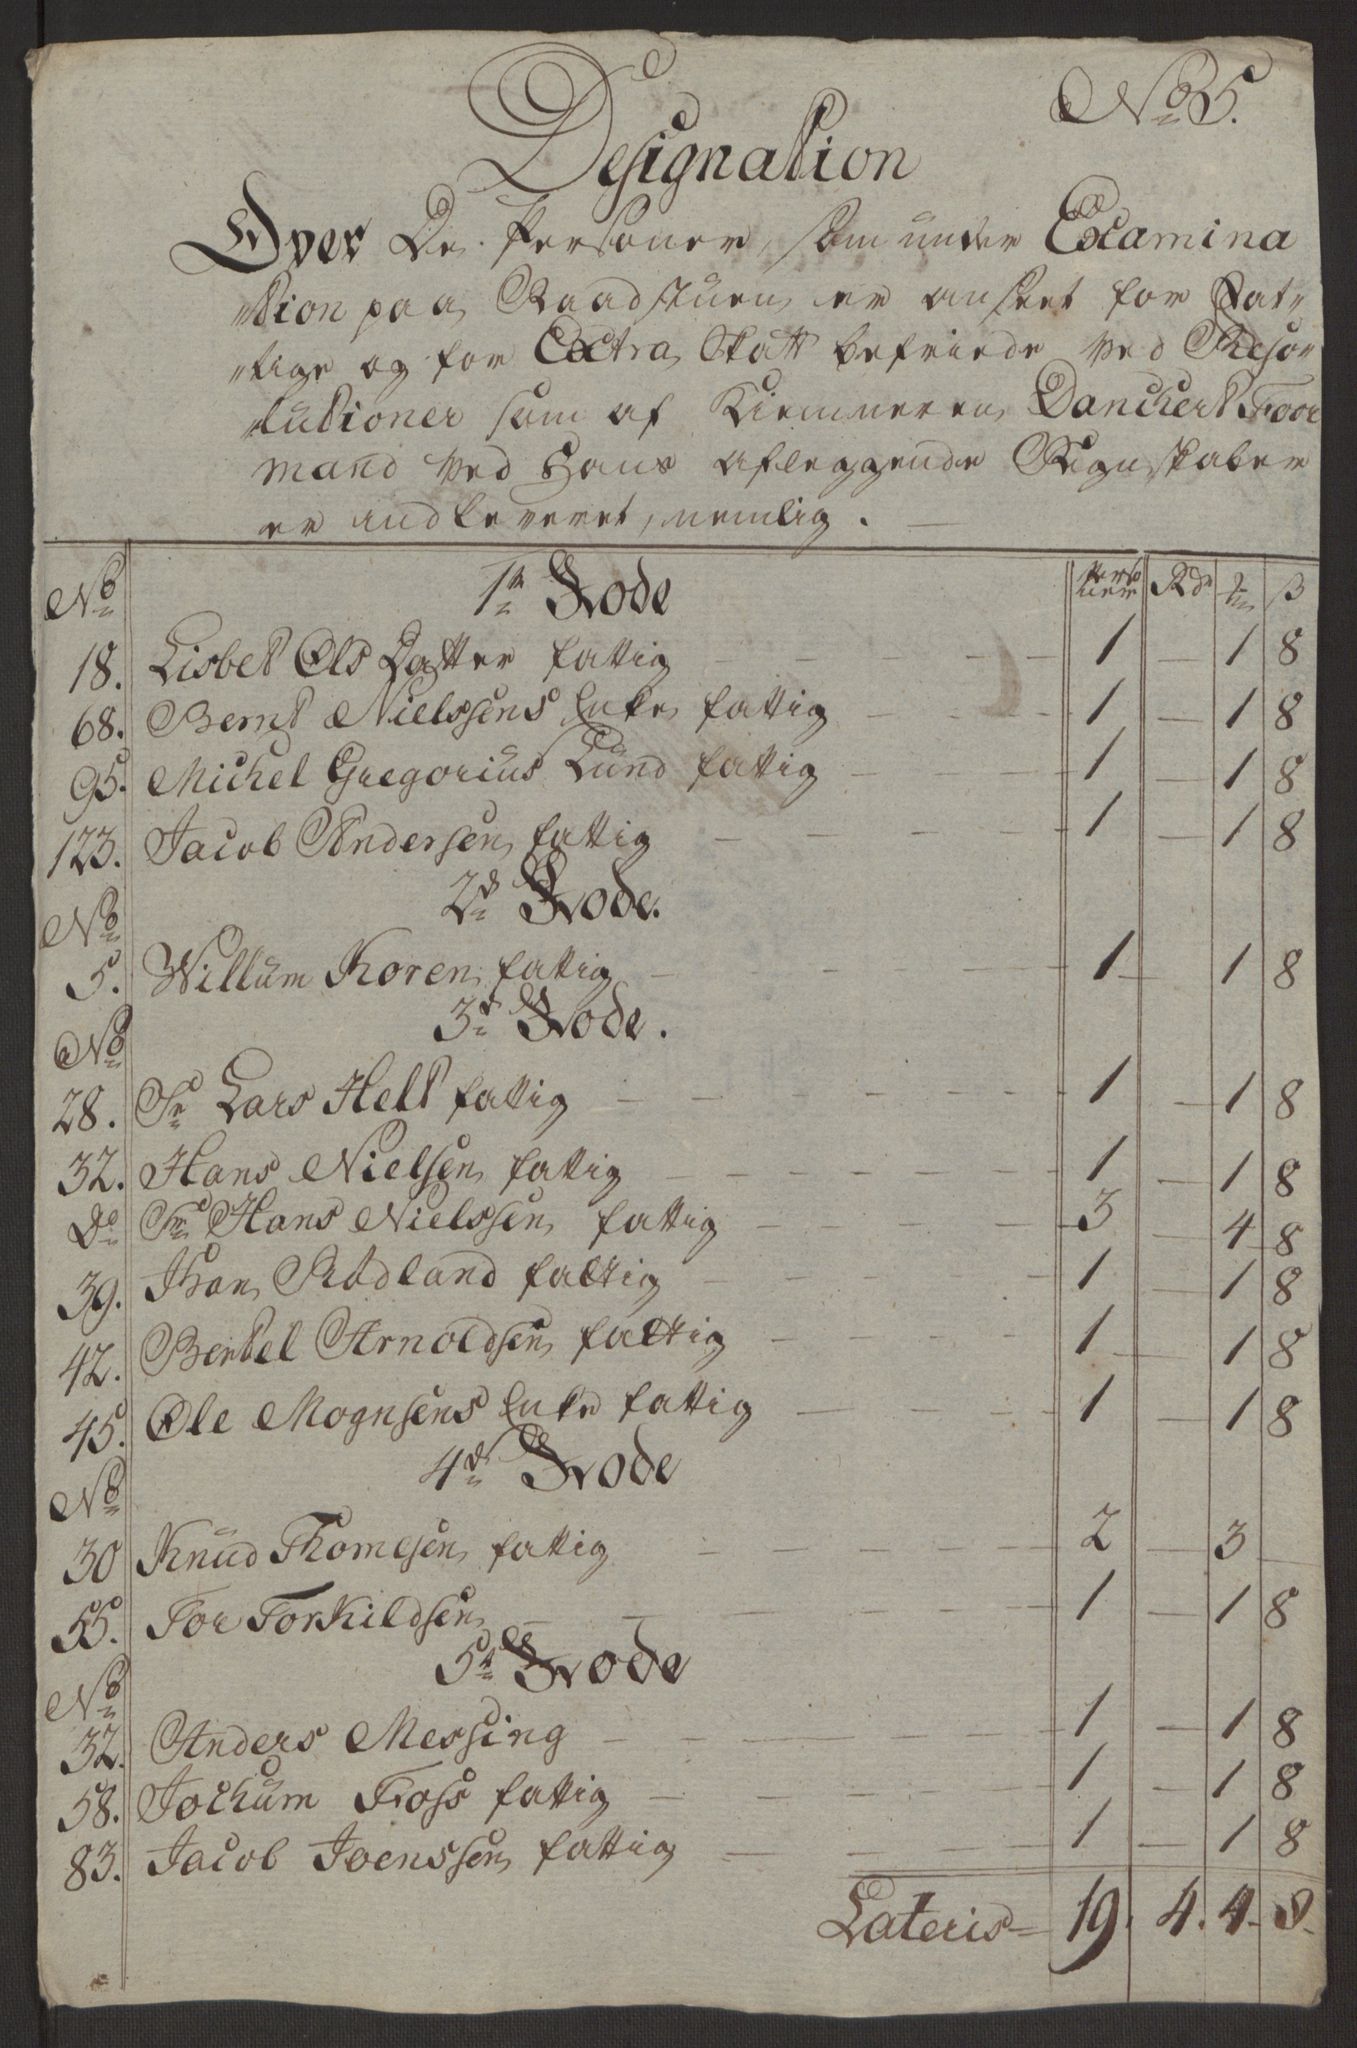 No 5.
Designation
Over De Personer, som under Examina
tion paa Raadstuen er anseet for Fat,,
,,tige og for Extra Skatt befriede ved Reso,,
,,lutioner som af Kiemneren Danchert Foor
mand ved Hans aflæggende Regnskaber
er indleveret, nemlig.
No 1te Rode Personer Rdr mk ß
18. Lisbet Ols Datter fattig 1 — 1 8
68. Bernt Nielssens Enke fattig 1 — 1 8
95. Michel Gregorius Lund fattig 1 — 1 8
123. Jacob Andersen fattig 1 — 1 8
No 2de Rode.
5. Willum Koren fattig 1 — 1 8
No 3de Rode.
28. Sr Lars Helt fattig 1 — 1 8
32. Hans Nielsen fattig 1 — 1 8
Do Hans Nielssen fattig 3 — 4 8
39. Rødland fattig 1 — 1 8
42. Bentel Arnoldsen fattig 1 — 1 8
45. Ole Mognsens Enke fattig 1 — 1 8
No 4de Rode
30 Knud Thomesen fattig 2 — 3 —
55. Tor Torkildsen 1 — 1 8
No 5te Rode
32. Anders Messing 1 — 1 8
58. Jochum Fross fattig 1 — 1 8
83. Jacob Joenssen fattig 1 — 1 8
Lateris 19. 4. 4. 8.